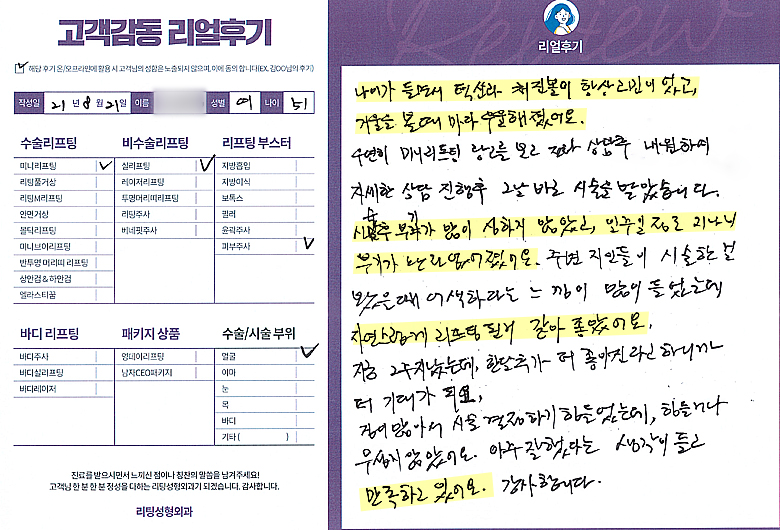 고객감동 리얼후기
해당 후기 온/오프라인에 활용 시 고객님의 성함은 노출되지 않으며, 이에 동의 합니다(EX. 김OO님의 후기)
작성일 21 년 8 월 21 일 이름 성별 여 나이 51
수술리프팅 비수술리프팅 리프팅 부스터
미니리프팅 실리프팅 지방흡입
리팅풀거상 레이저리프팅 지방이식
리팅M리프팅 투명머리띠리프팅 보톡스
안면거상 리팅주사 필러
몰딩리프팅 버네핏주사 윤곽주사
미니브이리프팅 피부주사
반투명 머리띠 리프팅
상안검 & 하안검
엘라스티꿈
바디 리프팅 패키지 상품 수술/시술 부위
바디주사 영네이리프팅 얼굴
바디실리프팅 남자CEO패키지 이마
바디레이저 눈
목
바디
기타 ( )
진료를 받으시면서 느끼신 점이나 칭찬의 말씀을 남겨주세요!
고객님 한 분 한 분 정성을 다하는 리팅성형외과가 되겠습니다. 감사합니다.
리팅성형외과
Review
리얼후기
나이가 들면서 턱선과 처진볼이 항상 고민이 었고,
거울을 볼때 마다 우울해 졌어요.
우연히 미니리프팅 광고를 보고 전화 상담후 내원하여
자세한 상담 진행후 그날 바로 시술을 받았습니다.
시술후 붓기가 많이 심하지 않았고, 일주일 정도 지나니
붓기가 거의 없어졌어요. 주변 지인들이 시술한 걸
봤을때 어색하다는 느낌이 많이 들었는데
자연스럽게 리프팅 된거 같아 좋았어요.
지금 2주지났는데, 한달후가 더 좋아진다고 하니까
더 기대가 되요.
겁이 많아서 시술 결정하기 힘들었는데, 힘들거나
무섭지 않았어요. 아주 잘했다는 생각이 들고
만족하고 있어요. 감사합니다.